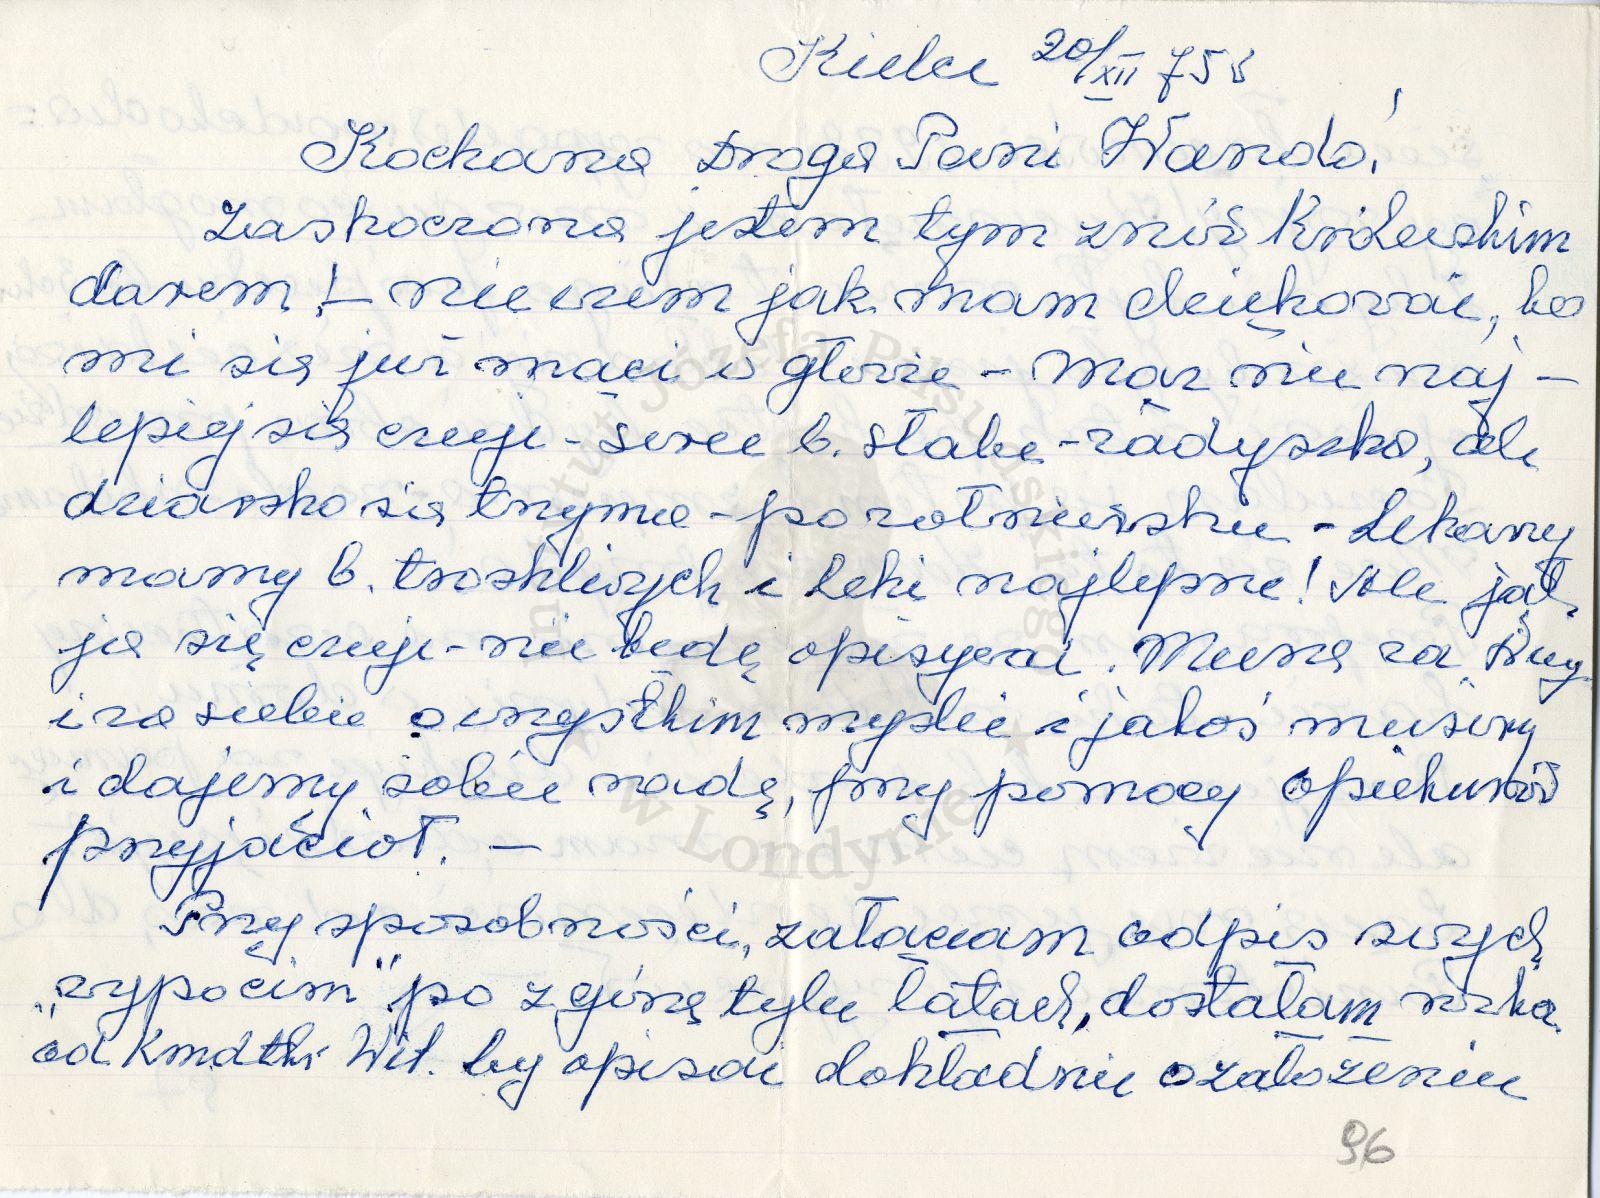 Kielce 20/XII 75 r
Kochana Droga Pani Wando!
Zaskoczona jestem tym znów Królewskim
darem! – nie wiem jak mam dziękować, bo
mi się już mąci w głowie – Mąż nie naj-
lepiej się czuje – serce b. słabe – zadyszka, ale
dziarsko się trzyma – po żołniersku – Lekarzy
mamy b. troskliwych i leki najlepsze! Ale jak
ja się czuję – nie będę opisywać. Muszę za Niego
i za siebie o wszystkim myśleć i jakoś musimy
i dajemy sobie radę, przy pomocy opiekunów
przyjaciół. –
Przy sposobności, załączam odpis swych
„wypocin" po z górą tylu latach, dostałam rozkaz
od Kmdtki Wit. by opisać dokładnie o założeniu
96
Instytut Józefa Piłsudskiego
w Londynie